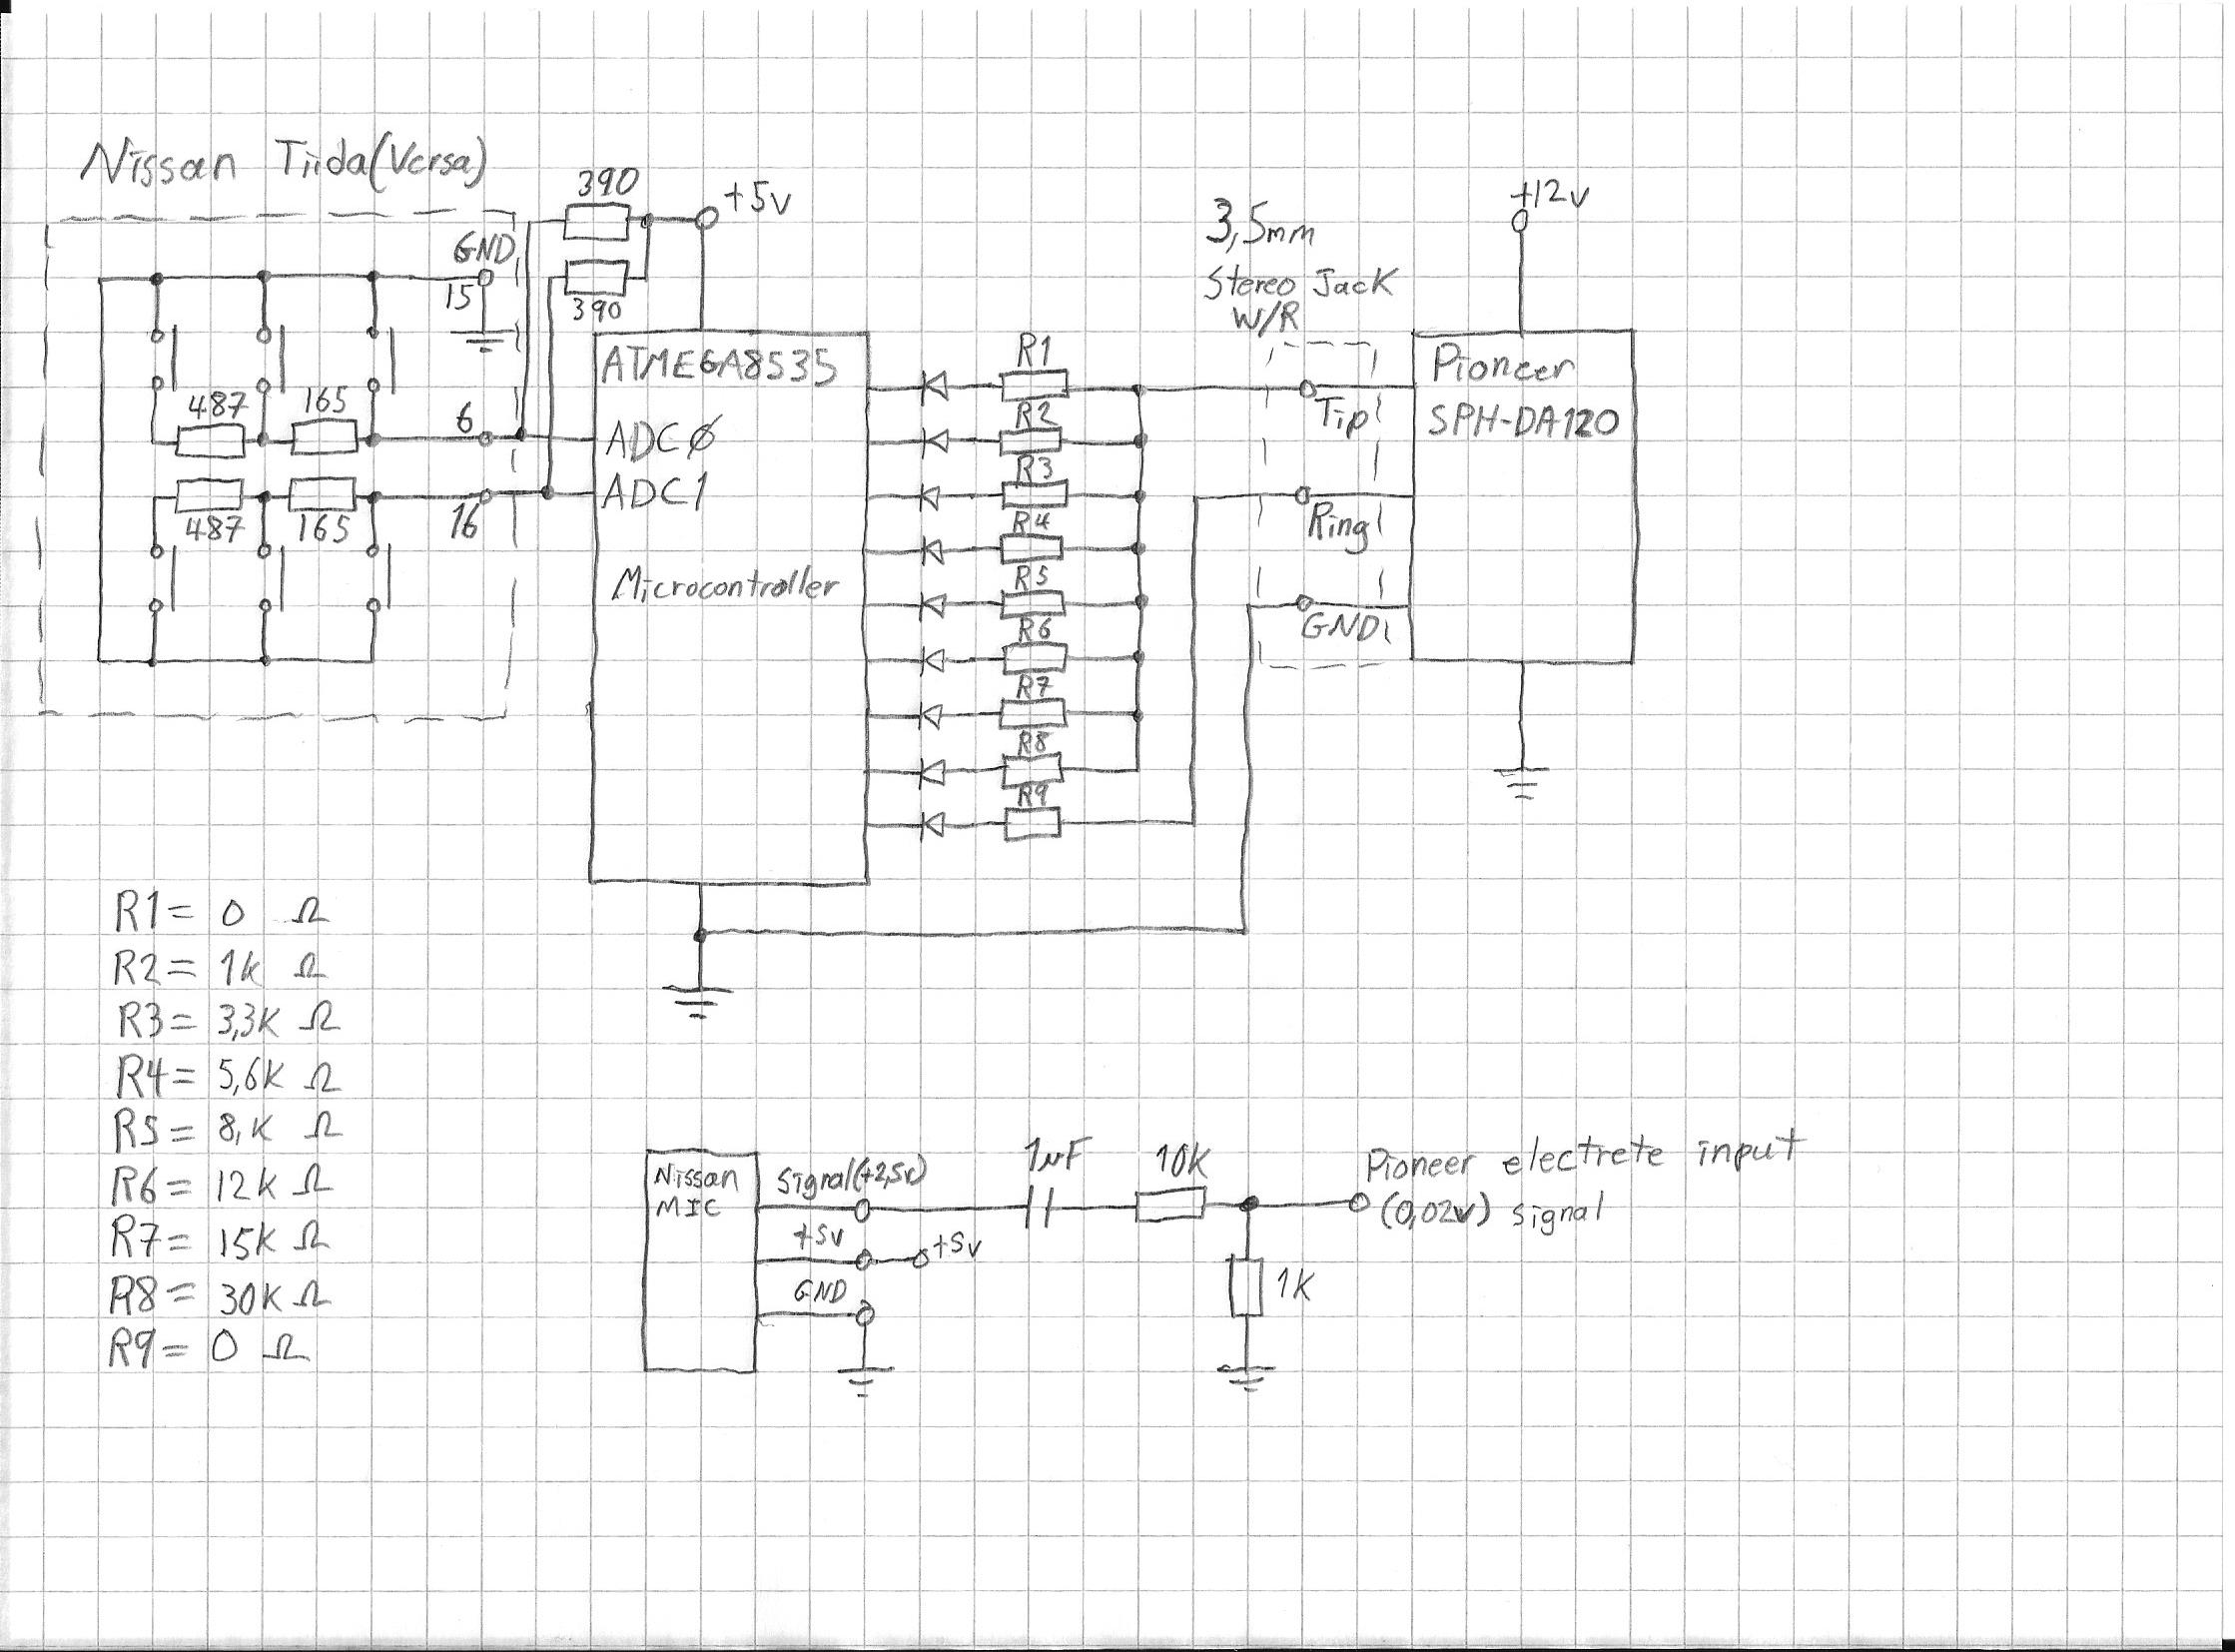 Nissan Tiida(Versa)
390
+5v
390
GND
15
487 165
6
487 165
16
ATMEGA8535
ADC0
ADC1
Microcontroller
R1
R2
R3
R4
R5
R6
R7
R8
R9
3,5mm
Stereo Jack
W/R
Tip
Ring
GND
+12v
Pioneer
SPH-DA120
R1= 0 Ω
R2= 1k Ω
R3= 3,3k Ω
R4= 5,6k Ω
R5= 8,k Ω
R6= 12k Ω
R7= 15k Ω
R8= 30k Ω
R9= 0 Ω
Nissan
MIC
Signal(+2,5v)
+5v
+5v
GND
1uF
10k
1k
Pioneer electrete input
(0,02v) signal